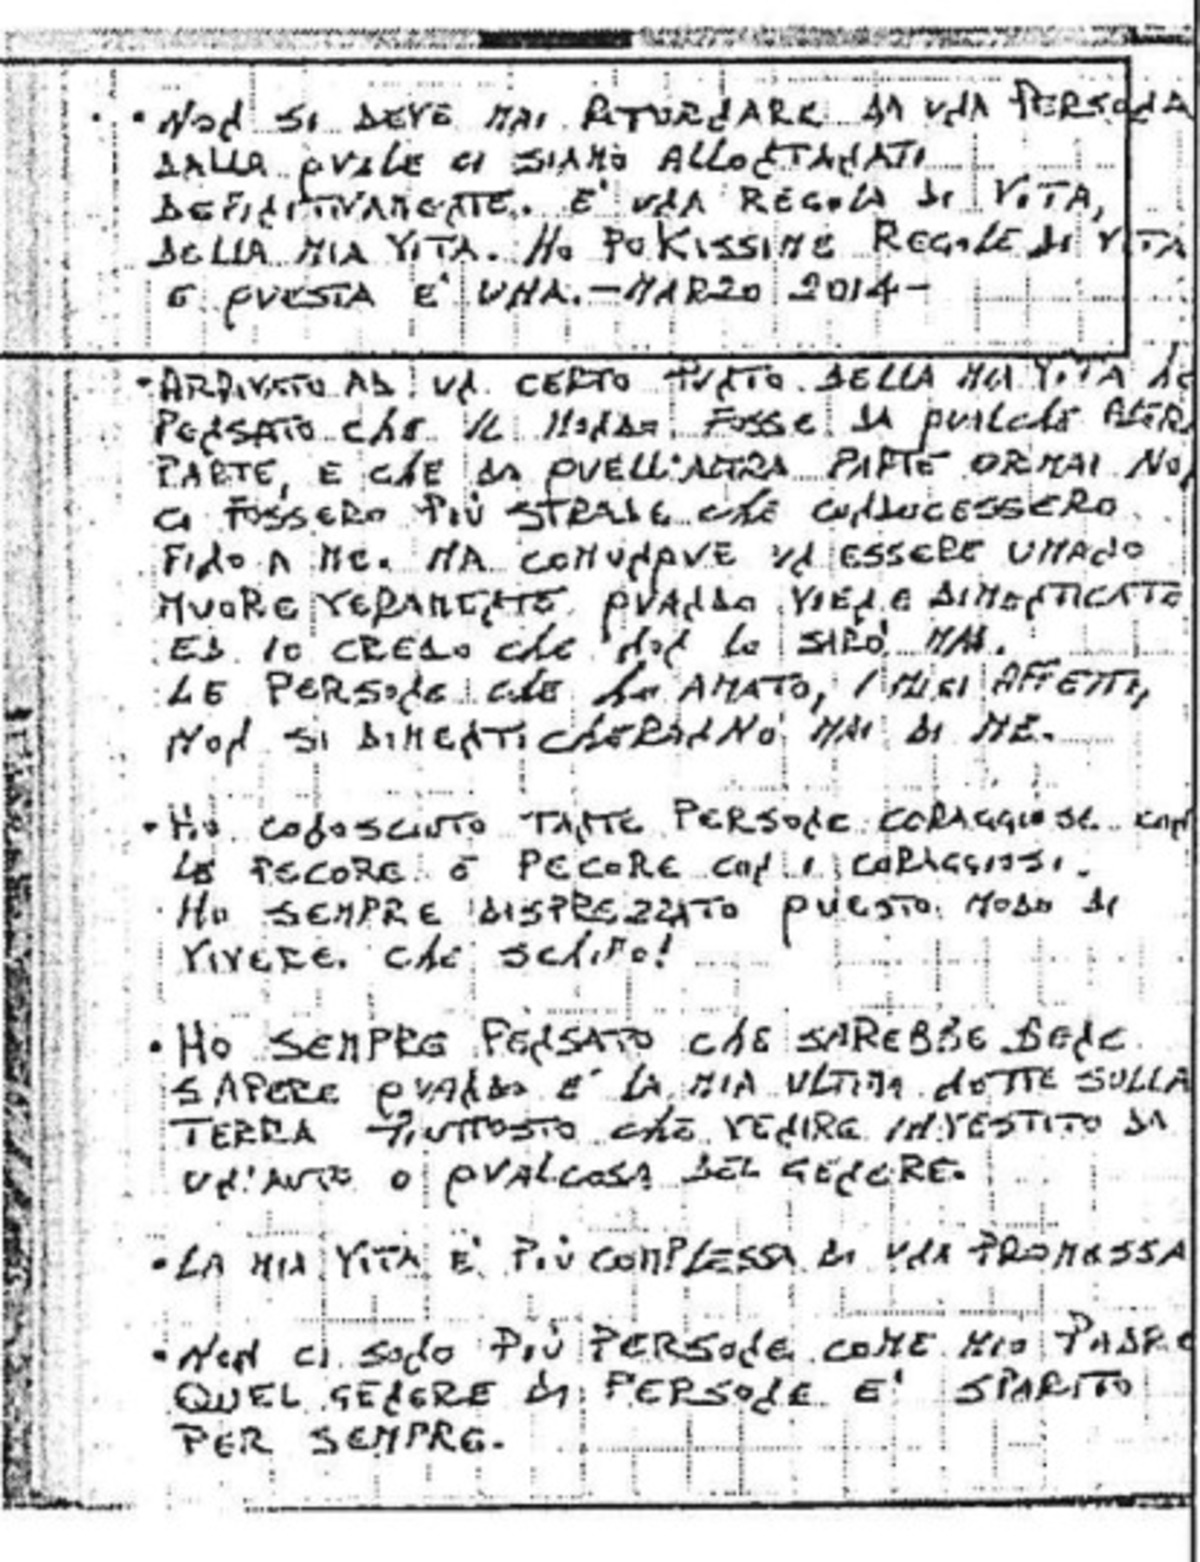 • NON SI DEVE MAI RITORNARE DA UNA PERSONA
DALLA QUALE CI SIAMO ALLONTANATI
DEFINITIVAMENTE. E' UNA REGOLA DI VITA,
DELLA MIA VITA. HO POKISSIME REGOLE DI VITA
E QUESTA E' UNA. - MARZO 2014 -
• ARRIVATO AD UN CERTO PUNTO DELLA MIA VITA HO
PENSATO CHE IL MONDO FOSSE DA QUALCHE ALTRA
PARTE, E CHE DA QUELL'ALTRA PARTE ORMAI NON
CI FOSSERO PIÙ STRADE CHE CONDUCESSERO
FINO A ME. MA COMUNQUE UN ESSERE UMANO
MUORE VERAMENTE QUANDO VIENE DIMENTICATO
ED IO CREDO CHE NON LO SARÒ MAI.
LE PERSONE CHE HO AMATO, I MIEI AFFETTI,
NON SI DIMENTICHERANNO MAI DI ME.
• HO CONOSCIUTO TANTE PERSONE CORAGGIOSE CON
LE PECORE E PECORE CON I CORAGGIOSI.
HO SEMPRE DISPREZZATO QUESTO MODO DI
VIVERE. CHE SCHIFO!
• HO SEMPRE PENSATO CHE SAREBBE BENE
SAPERE QUANDO E' LA MIA ULTIMA NOTTE SULLA
TERRA PIUTTOSTO CHE VENIRE INVESTITO DA
UN'AUTO O QUALCOSA DEL GENERE.
• LA MIA VITA E' PIÙ COMPLESSA DI UNA PROMESSA
• NON CI SONO PIÙ PERSONE COME MIO PADRE
QUEL GENERE DI PERSONE E' SPARITO
PER SEMPRE.